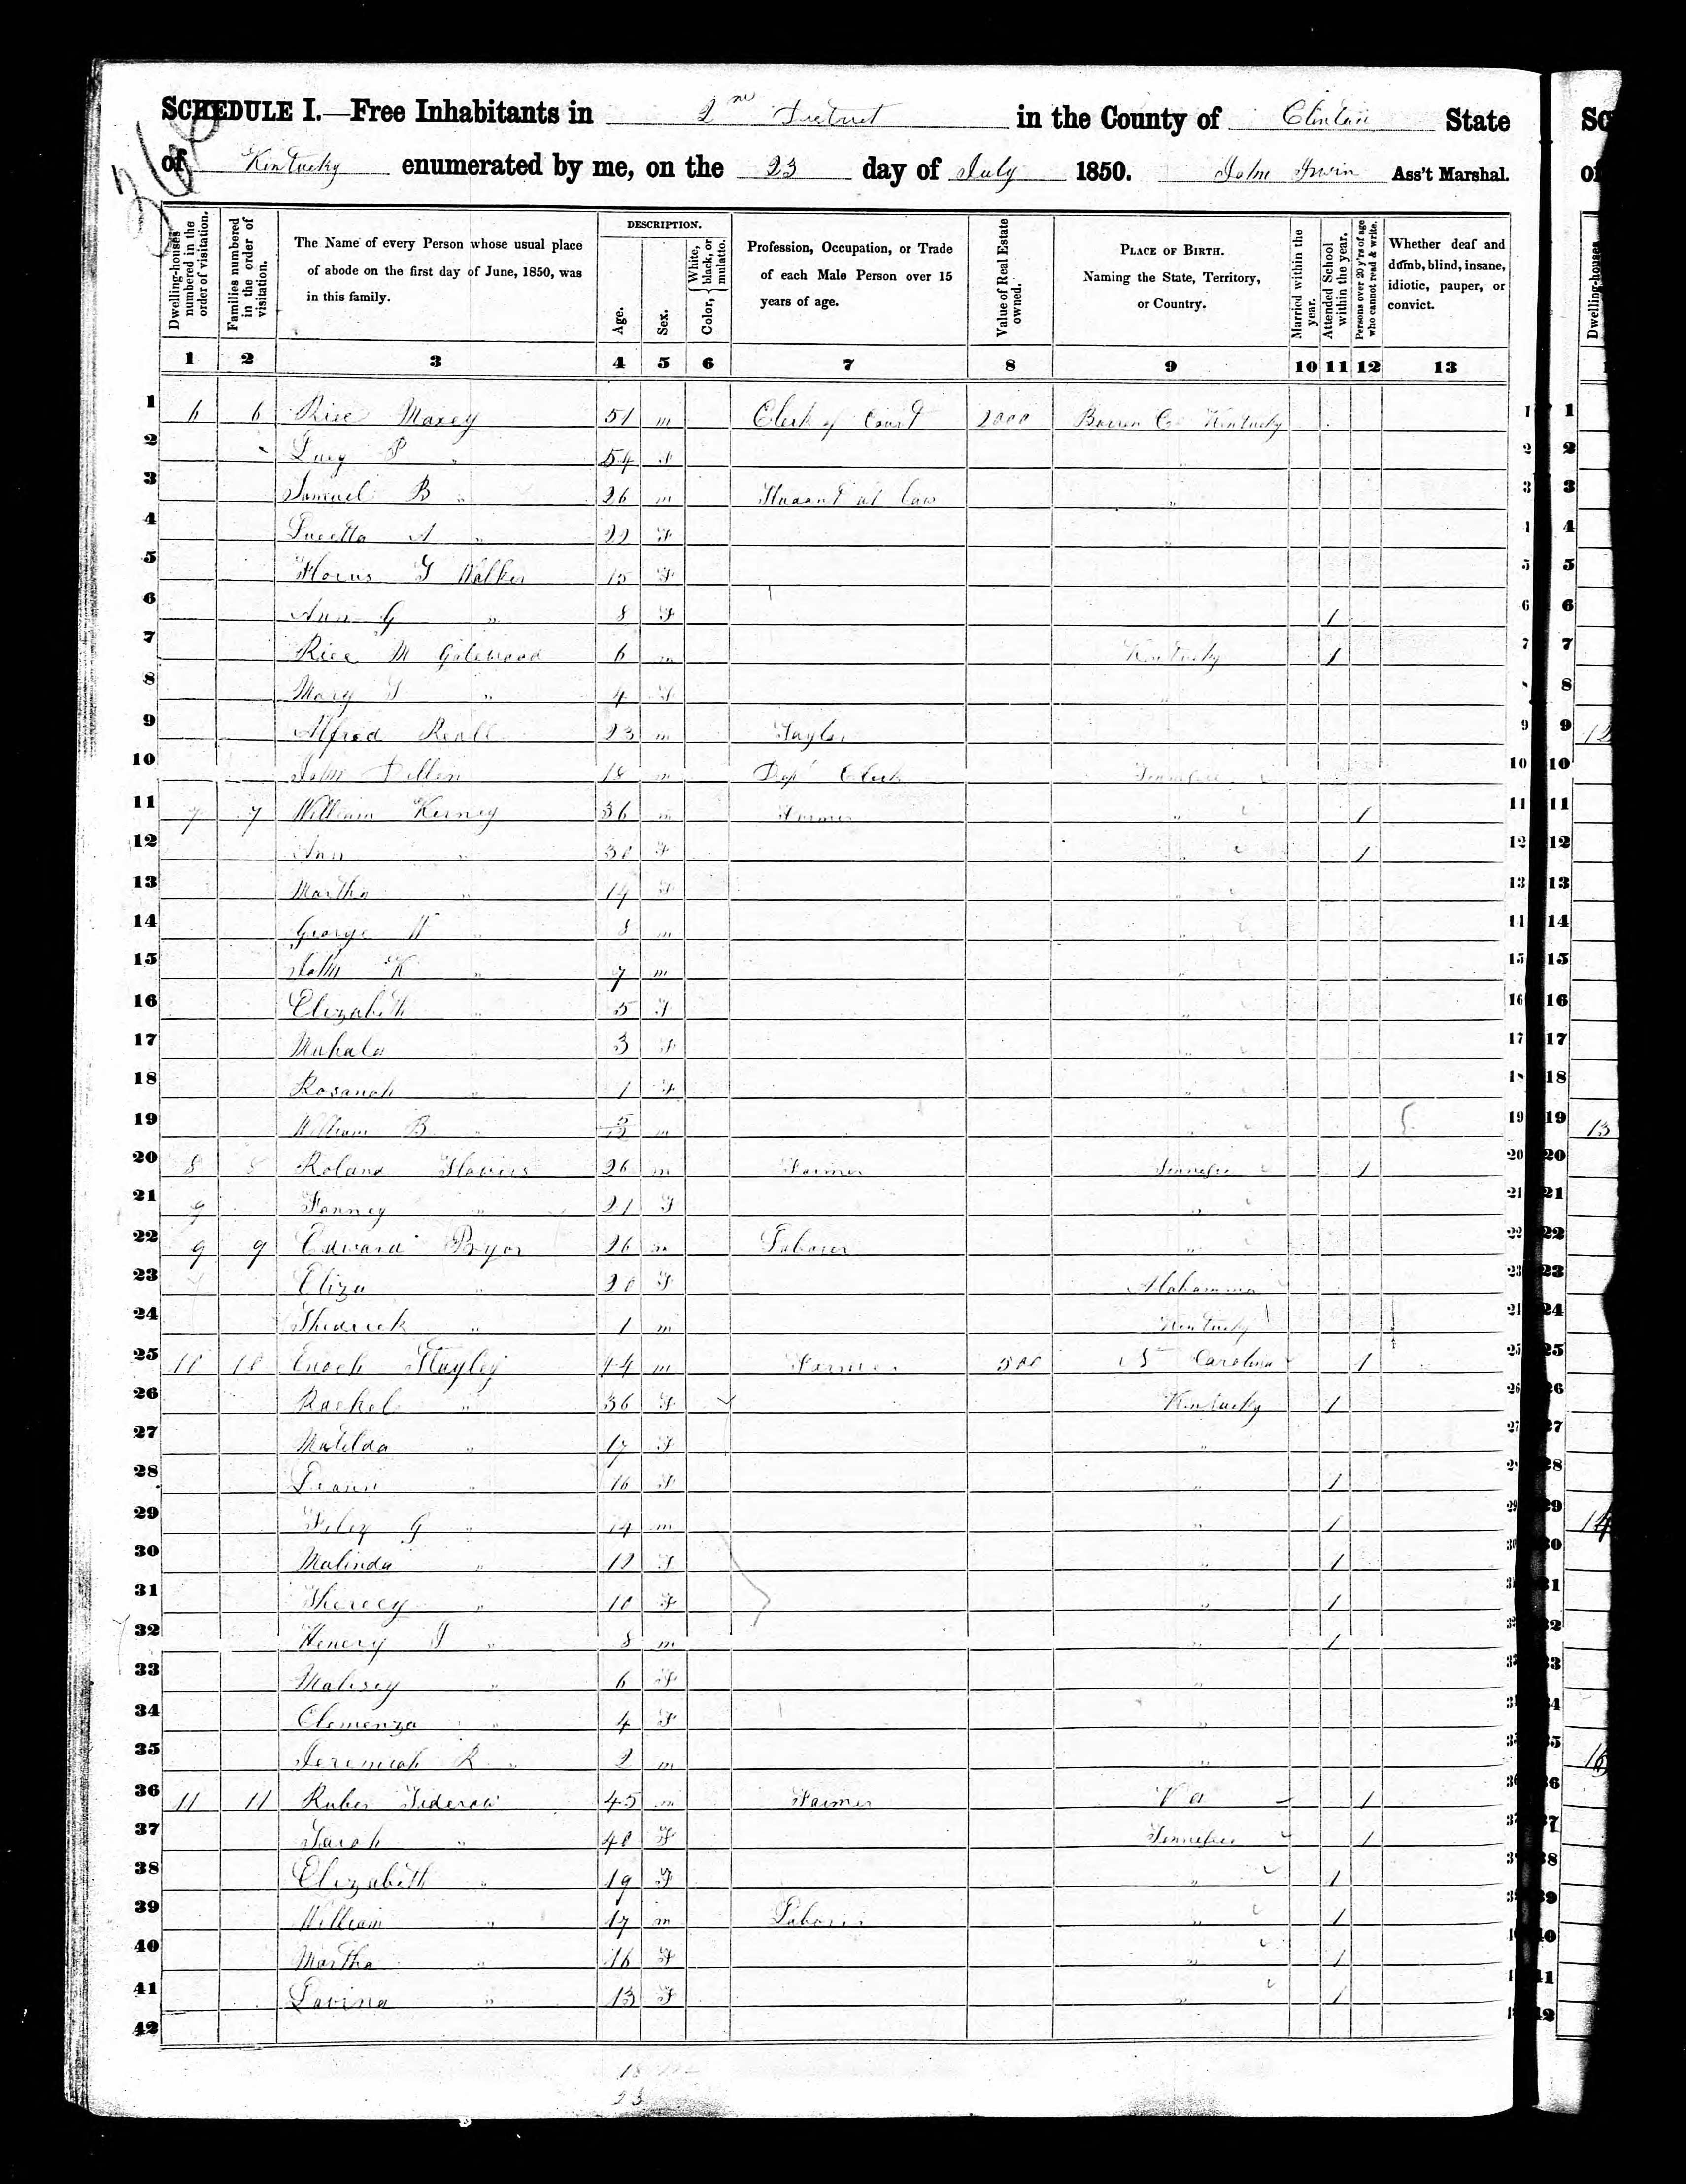 SCHEDULE I.—Free Inhabitants in 2nd District in the County of Clinton State
of Kentucky enumerated by me, on the 23 day of July 1850. John Irwin Ass't Marshal.
Dwelling-houses numbered in the order of visitation.
Families numbered in the order of visitation.
The Name of every Person whose usual place of abode on the first day of June, 1850, was in this family.
DESCRIPTION.
Age.
Sex.
Color, { White, black, or mulatto.
Profession, Occupation, or Trade of each Male Person over 15 years of age.
Value of Real Estate owned.
PLACE OF BIRTH. Naming the State, Territory, or Country.
Married within the year.
Attended School within the year.
Persons over 20 y'rs of age who cannot read & write.
Whether deaf and dumb, blind, insane, idiotic, pauper, or convict.
1 2 3 4 5 6 7 8 9 10 11 12 13
1 6 6 Rice Maxey 51 m Clerk of Court 2000 Barren Co Kentucky 1
2 Lucy P " 54 f " 2
3 Samuel B " 26 m at Law " 3
4 Lucetta A " 22 F " 4
5 G Walker 15 F 5
6 Ann G " 8 F 1 6
7 Rice M Gatewood 6 m Kentucky 1 7
8 Mary " 4 F "
9 Alfred 23 m Taylor 9
10 John Dillen 18 m Dept Clerk Tennessee 10
11 7 7 William Kerney 36 m Farmer " 1 11
12 Ann " 30 F " 1 12
13 Martha " 14 F " 13
14 George W " 8 m " 14
15 John K " 7 m " 15
16 Elizabeth " 5 F " 16
17 Mahala " 3 F " 17
18 Rosanah " 1 F " 18
19 William B " 5/12 m " 19
20 8 8 Roland Flowers 26 m Farmer Tennessee 1 20
21 9 Fanney " 21 F " 21
22 9 9 Edward Pryor 26 m Laborer " 22
23 Eliza " 20 F Alabamma 23
24 Shedrick " 1 m Kentucky 24
25 10 10 Enoch Stayley 44 m Farmer 500 N Carolina 1 25
26 Rachel " 36 F Kentucky 1 26
27 Matilda " 17 F " 27
28 " 16 F " 1 28
29 G " 14 m " 1 29
30 Malinda " 12 F " 1 30
31 " 10 F " 1 31
32 Henery " 8 m " 1 32
33 Malisey " 6 F " 33
34 Clemenza " 4 F " 34
35 Jeremiah R " 2 m " 35
36 11 11 Ruben 45 m Farmer Va 1 36
37 Sarah " 40 F Tennessee 1 37
38 Elizabeth " 19 F " 1 38
39 William " 17 m Laborer " 1 39
40 Martha " 16 F " 1 40
41 Lavina " 13 F " 1 41
42
23